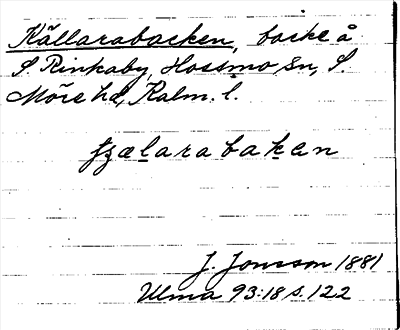 Källarabacken, backe å
S. Rinkaby, Hossmo sn, S.
Möre hd, Kalm. l.
tʒæļarabaken
J. Jonsson 1881
Ulma 93:18 s. 122